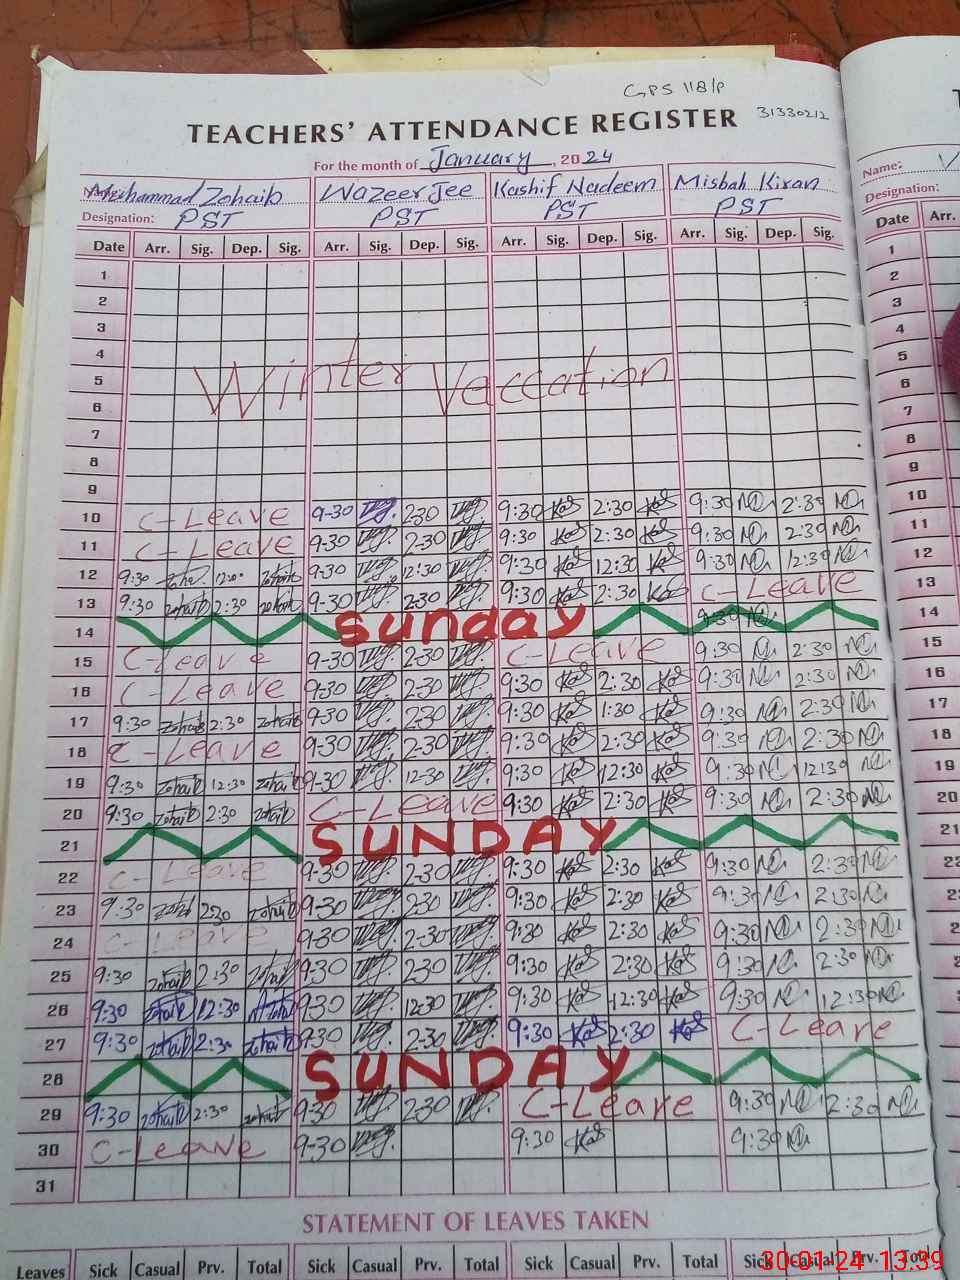 GPS 118/P
31330212
TEACHERS' ATTENDANCE REGISTER
For the month of January, 2024
Name: Muhammad Zohaib Wazeer Jee Kashif Nadeem Misbah Kiran
Designation: PST PST PST PST
Date Arr. Sig. Dep. Sig. Arr. Sig. Dep. Sig. Arr. Sig. Dep. Sig. Arr. Sig. Dep. Sig.
1
2
3
4
Winter Veccation
5
6
7
8
9
10 C-Leave 9-30 230 9:30 Kas 2:30 Kas 9:30 2:30
11 C-Leave 9-30 2-30 9:30 Kas 2:30 Kas 9:30 2:30
12 9:30 Zoha 12:00 Zohaib 9-30 12:30 9:30 Kas 12:30 Kas 9:30 12:30
13 9:30 Zohaib 2:30 Zohaib 9-30 2-30 9:30 Kas 2:30 Kas C-Leave
14 Sunday 9:30
15 C-Leave 9-30 2-30 C-Leave 9:30 2:30
16 C-Leave 9-30 2-30 9:30 Kas 2:30 Kas 9:30 2:30
17 9:30 Zohaib 2:30 Zohaib 9-30 2-30 9:30 Kas 1:30 Kas 9:30 2:30
18 C-Leave 9-30 2-30 9:30 Kas 2:30 Kas 9:30 2:30
19 9:30 Zohaib 12:30 Zohaib 9-30 12-30 9:30 Kas 12:30 Kas 9:30 12:30
20 9:30 Zohaib 2:30 Zohaib C-Leave 9:30 Kas 2:30 Kas 9:30 2:30
21 SUNDAY
22 C-Leave 9-30 2-30 9:30 Kas 2:30 Kas 9:30 2:30
23 9:30 Zohaib 2:30 Zohaib 9-30 2-30 9:30 Kas 2:30 Kas 9:30 2:30
24 C-Leave 9-30 2-30 9:30 Kas 2:30 Kas 9:30 2:30
25 9:30 Zohaib 2:30 Zohaib 9-30 2-30 9:30 Kas 2:30 Kas 9:30 2:30
26 9:30 Zohaib 12:30 Zohaib 9-30 12-30 9:30 Kas 12:30 Kas 9:30 12:30
27 9:30 Zohaib 2:30 Zohaib 9-30 2-30 9:30 Kas 2:30 Kas C-Leave
28 SUNDAY
29 9:30 Zohaib 2:30 Zohaib 9-30 2-30 C-Leave 9:30 2:30
30 C-Leave 9-30 9:30 Kas 9:30
31
STATEMENT OF LEAVES TAKEN
Leaves Sick Casual Prv. Total Sick Casual Prv. Total Sick Casual Prv. Total Sick Casual Prv. Total
Name:
Designation:
Date Arr.
1
2
3
4
5
6
7
8
9
10
11
12
13
14
15
16
17
18
19
20
21
30-01-24 13:39